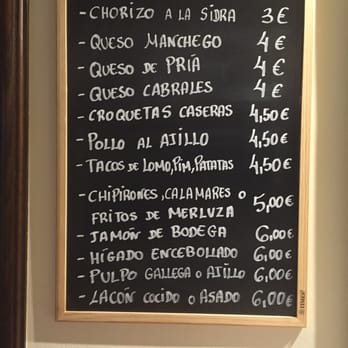 - CHORIZO A LA SIDRA 3€
- QUESO MANCHEGO 4€
- QUESO DE PRÍA 4€
- QUESO CABRALES 4€
- CROQUETAS CASERAS 4,50€
- POLLO AL AJILLO 4,50€
- TACOS DE LOMO, PIM, PATATAS 4,50€
- CHIPIRONES, CALAMARES O
FRITOS DE MERLUZA 5,00€
- JAMÓN DE BODEGA 6,00€
- HÍGADO ENCEBOLLADO 6,00€
- PULPO GALLEGA O AJILLO 6,00€
- LACÓN COCIDO O ASADO 6,00€